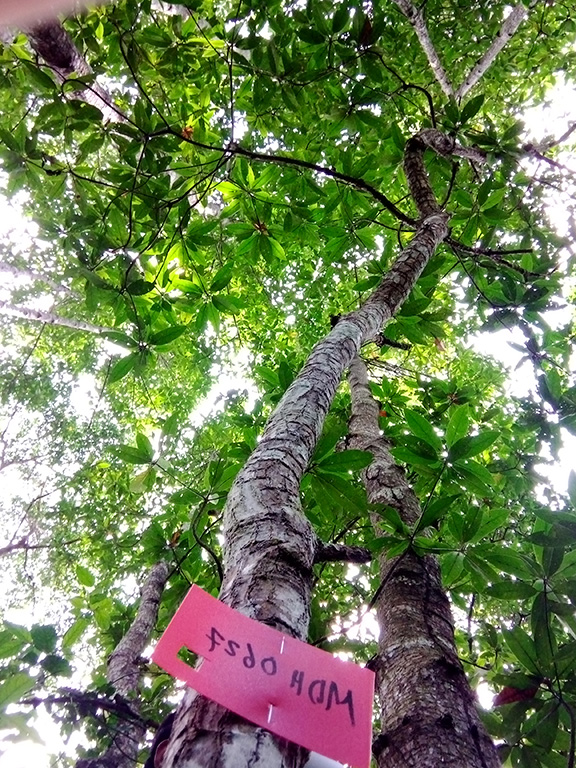 MDH 0627